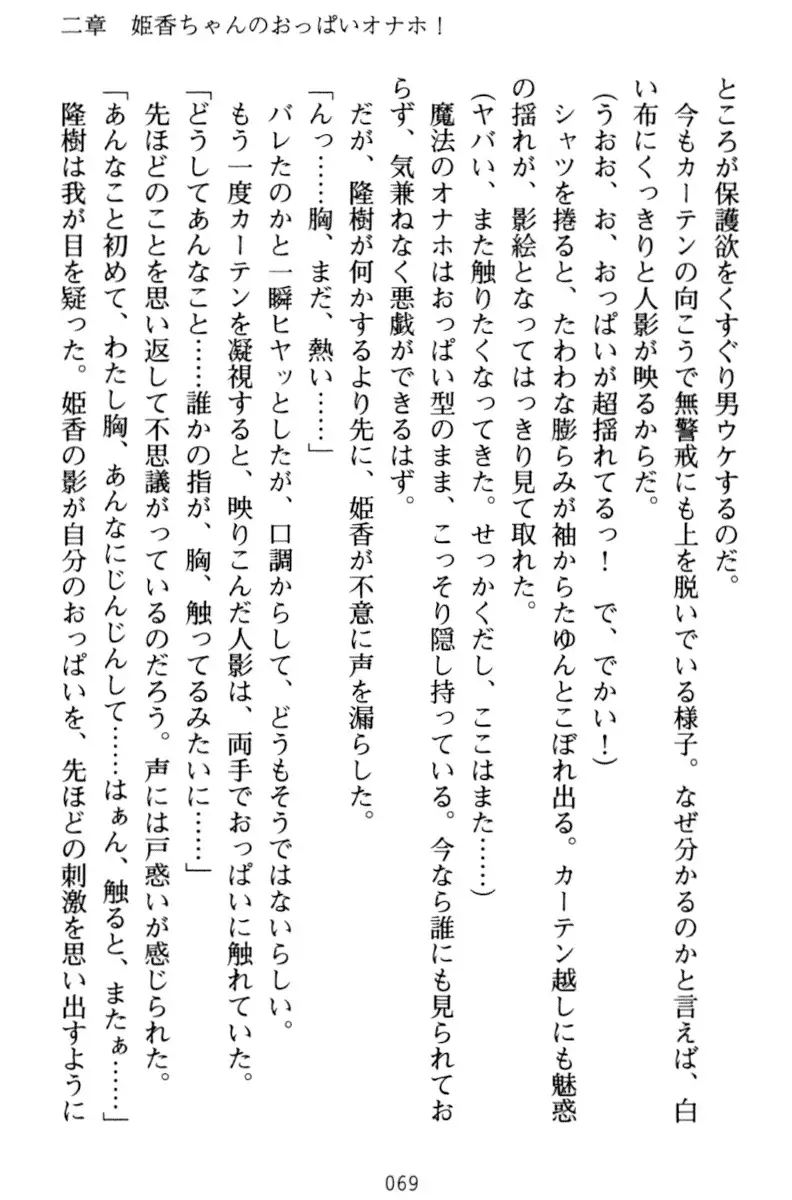 二章　姫香ちゃんのおっぱいオナホ！
ところが保護欲をくすぐり男ウケするのだ。
　今もカーテンの向こうで無警戒にも上を脱いでいる様子。なぜ分かるのかと言えば、白
い布にくっきりと人影が映るからだ。
（うおお、お、おっぱいが超揺れてるっ！　で、でかい！）
　シャツを捲ると、たわわな膨らみが袖からたゆんとこぼれ出る。カーテン越しにも魅惑
の揺れが、影絵となってはっきり見て取れた。
（ヤバい、また触りたくなってきた。せっかくだし、ここはまた……）
　魔法のオナホはおっぱい型のまま、こっそり隠し持っている。今なら誰にも見られてお
らず、気兼ねなく悪戯ができるはず。
　だが、隆樹が何かするより先に、姫香が不意に声を漏らした。
「んっ……胸、まだ、熱い……」
　バレたのかと一瞬ヒヤッとしたが、口調からして、どうもそうではないらしい。
　もう一度カーテンを凝視すると、映りこんだ人影は、両手でおっぱいに触れていた。
「どうしてあんなこと……誰かの指が、胸、触ってるみたいに……」
　先ほどのことを思い返して不思議がっているのだろう。声には戸惑いが感じられた。
「あんなこと初めて、わたし胸、あんなにじんじんして……はぁん、触ると、またぁ……」
　隆樹は我が目を疑った。姫香の影が自分のおっぱいを、先ほどの刺激を思い出すように
069